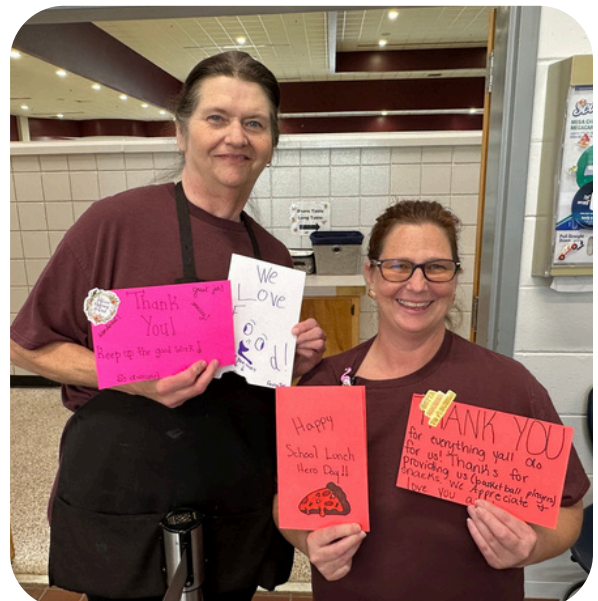 Thank
You!
great job!
Keep up the good work!
We
Love
d!
Share Table
Long Table
Happy
School Lunch
Hero Day!!
THANK YOU
for everything yall do
for us! Thanks for
providing us (basketball players)
snacks. We Appreciate &
love you all